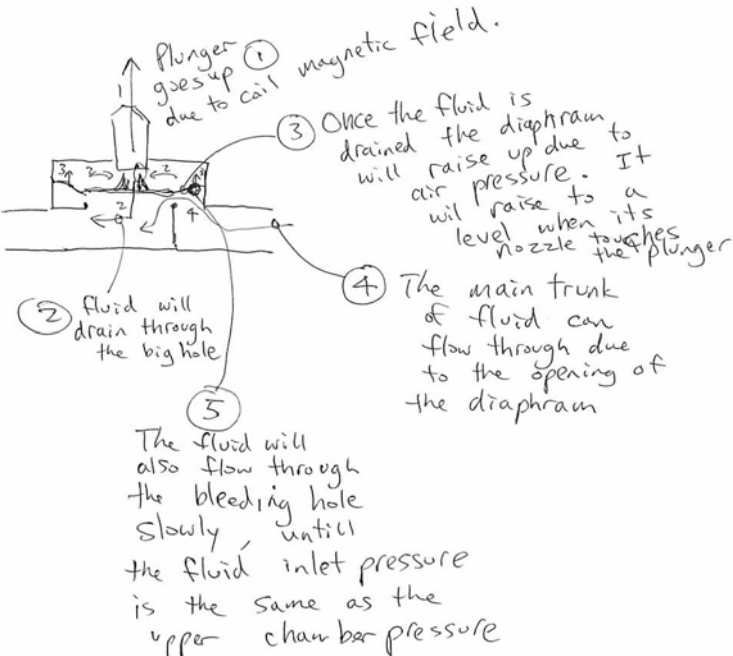 Plunger ①
goes up
due to coil magnetic field.
1
③ Once the fluid is
drained the diaphram
will raise up due to
air pressure. It
wil raise to a
level when its
nozzle touches
the plunger
3 2 2 3
2 4
② fluid will
drain through
the big hole
④ The main trunk
of fluid can
flow through due
to the opening of
the diaphram
⑤
The fluid will
also flow through
the bleeding hole
slowly, untill
the fluid inlet pressure
is the same as the
upper chamber pressure